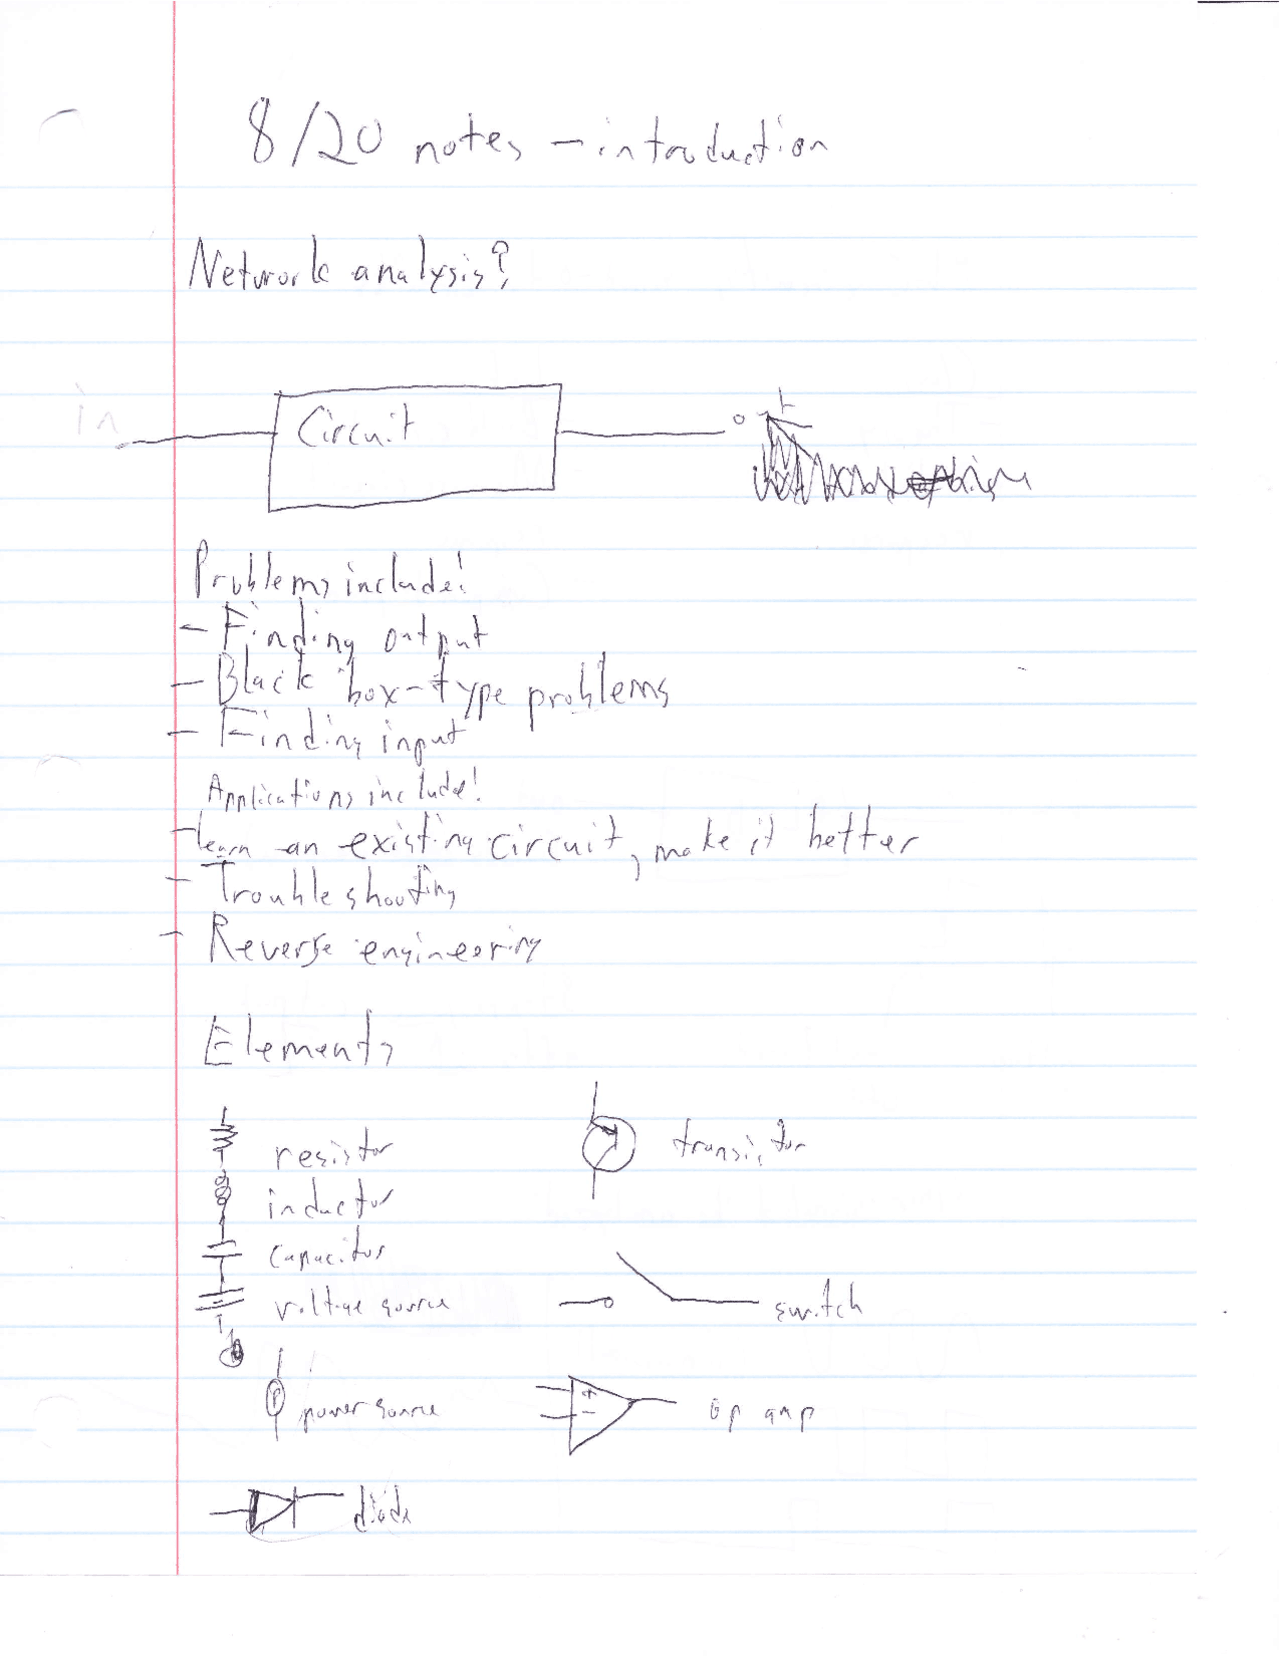 8/20 notes - introduction
Network analysis?
in
Circuit
out
Problems include:
- Finding output
- Black box-type problems
- Finding input
Applications include:
- learn an existing circuit, make it better
- Troubleshooting
- Reverse engineering
Elements
resistor
transistor
inductor
capacitor
voltage source
switch
power source
+
-
op amp
diode